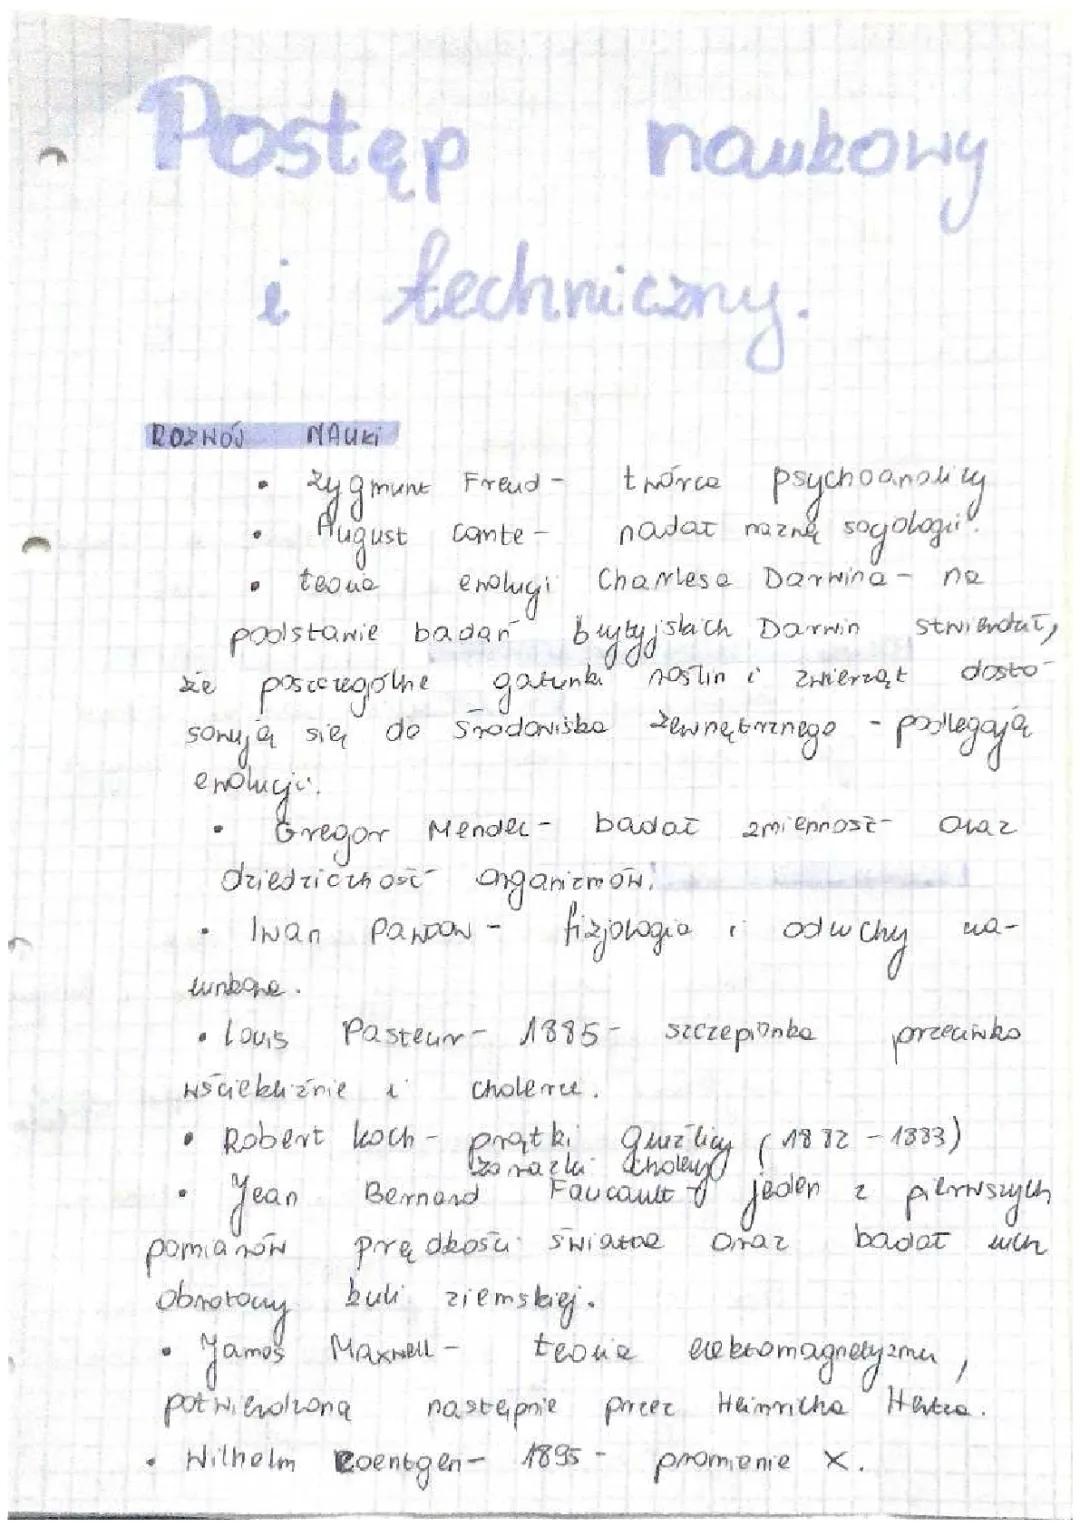 Postęp naukowy
i techniczny.
ROZWÓJ NAUKI
• Zygmunt Freud - twórca psychoanalizy
• August Comte - nadał nazwę socjologii.
• teoria ewolucji Charlesa Darwina - na
podstawie badań brytyjskich Darwin stwierdził,
że poszczególne gatunki roślin i zwierząt dosto-
sowują się do środowiska zewnętrznego - podlegają
ewolucji.
• Gregor Mendel - badał zmienność oraz
dziedziczność organizmów.
• Iwan Pawłow - fizjologia i odruchy wa-
runkowe.
• Louis Pasteur - 1885 - szczepionka przeciwko
wściekliźnie i cholerze.
• Robert Koch - prątki gruźlicy (1882 - 1883)
zarazki cholery
• Jean Bernard Foucault - jeden z pierwszych
pomiarów prędkości światła oraz badał ruch
obrotowy kuli ziemskiej.
• James Maxwell - teoria elektromagnetyzmu,
potwierdzona następnie przez Heinricha Hertza.
• Wilhelm Roentgen - 1895 - promienie X.